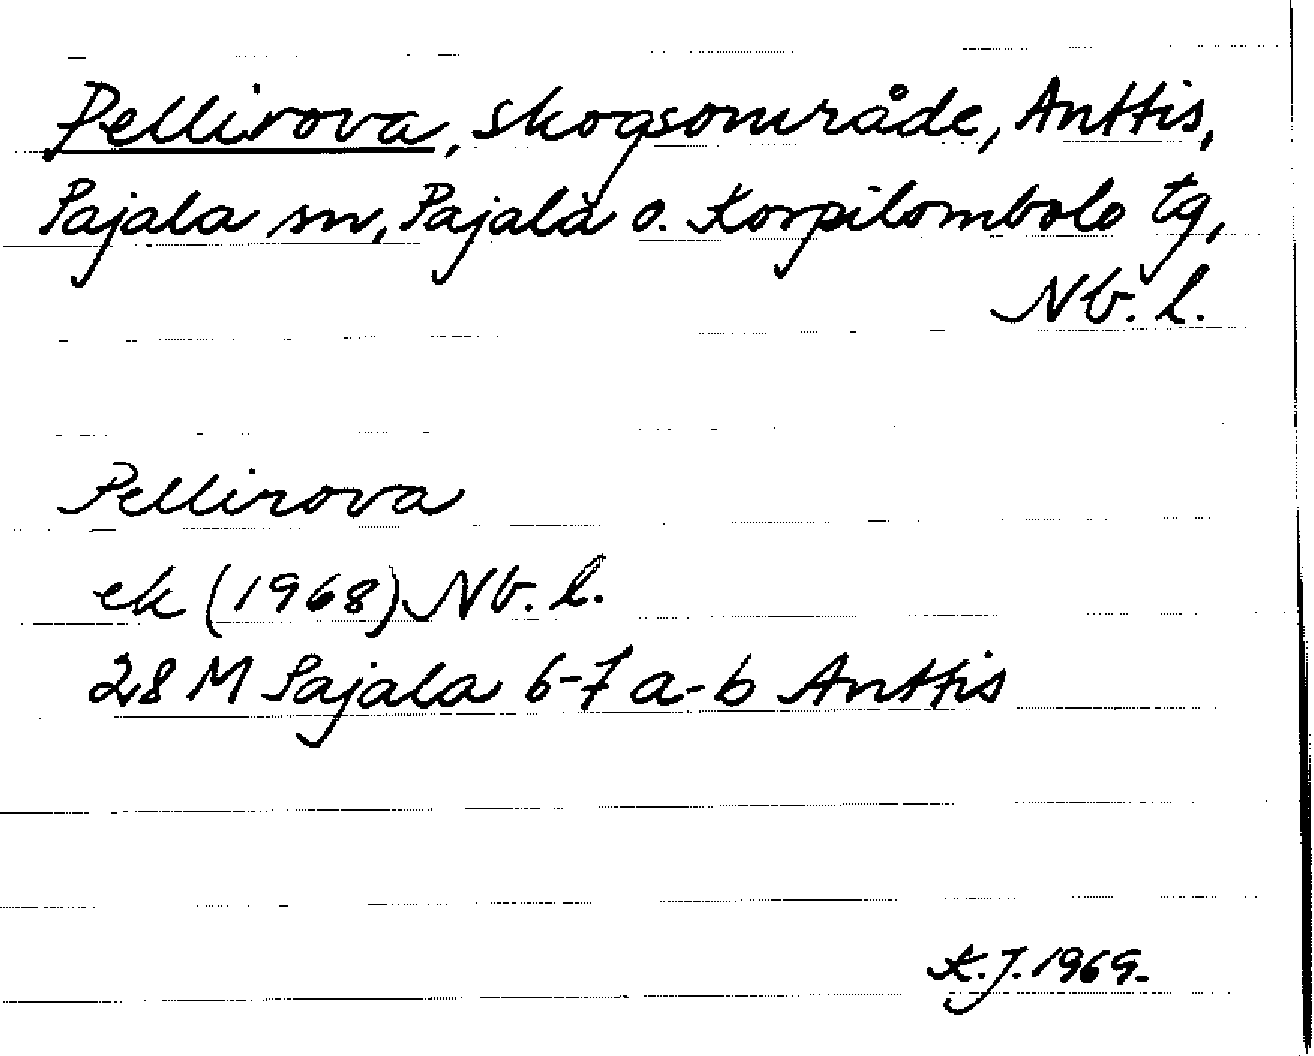 Pellirova, skogsområde, Anttis,
Pajala sn, Pajala o. Korpilombolo tg,
Nb. l.
Pellirova
ek (1968) Nb. l.
28 M Pajala 6-7 a-b Anttis
K.J. 1969.